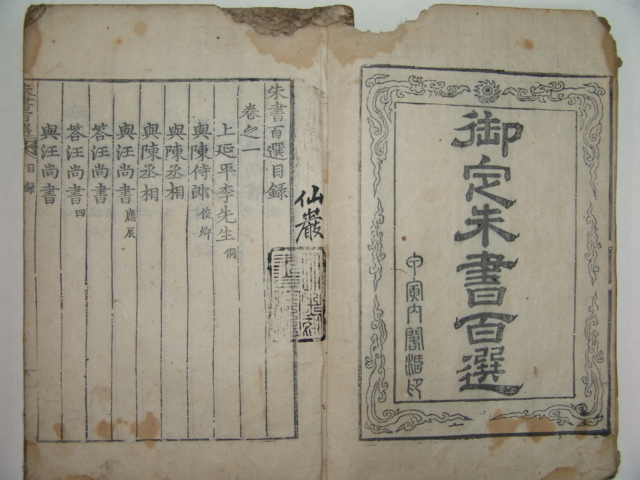 御定朱書百選
甲寅内閣活印
仙巖
朱書百選目録
卷之一
上延平李先生侗
與陳侍郎俊卿
與陳丞相
與陳丞相
與汪尚書應辰
答汪尚書
答汪尚書四
與汪尚書